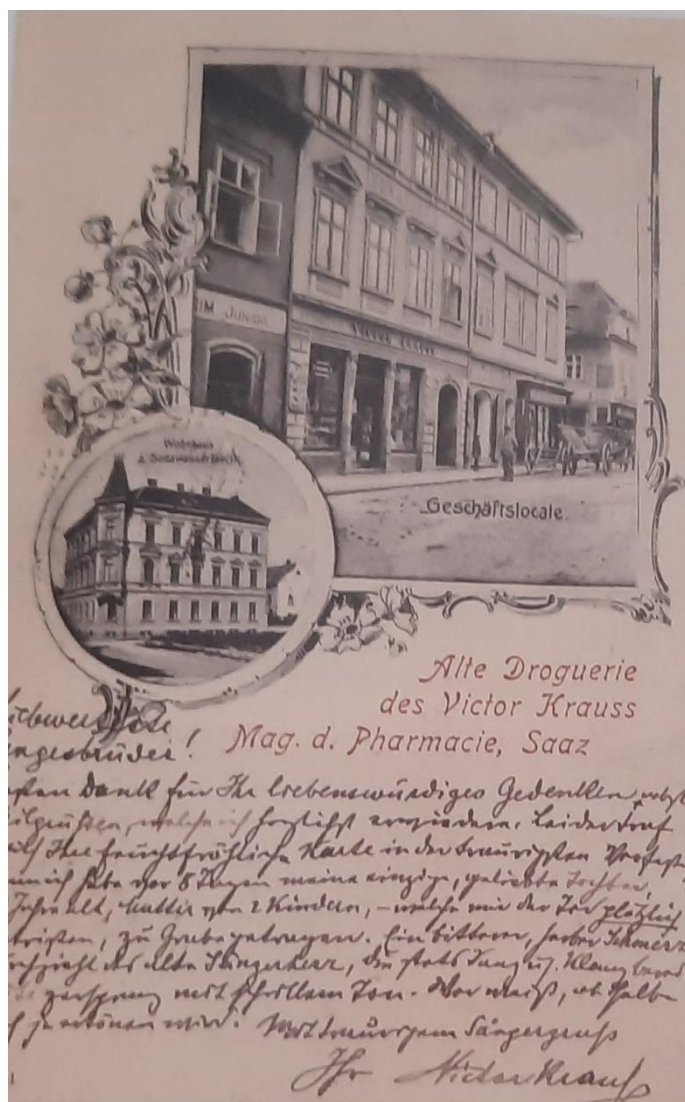 RIM JUNIOR
VICTOR KRAUSS
Wohnhaus
u. Sodawasserfabrik
Geschäftslocale.
Alte Droguerie
des Victor Krauss
Mag. d. Pharmacie, Saaz
liebwerthete
ngesbrüder!
sten Dank für Ihr liebenswürdiges Gedenken nebst
eilgrüßen, welche ich herzlichst erwiedere. Leider traf
mich Ihre feuchtfröhliche Karte in der traurigsten Verfass
nn ich habe vor 8 Tagen meine einzige, geliebte Tochter,
Jahre alt, Mutter von 2 Kindern, – welche mir der Tod plötzlich
trissen, zu Grabe getragen. Ein bitterer, herber Schmerz
rchzieht das alte Sängerherz, die stets Sang u. Klang
zersprang mit schrillem Ton. Wer weiß, ob selbe
je ertönen wird. Mit traurigem Sängergruß
Ihr Victor Krauß